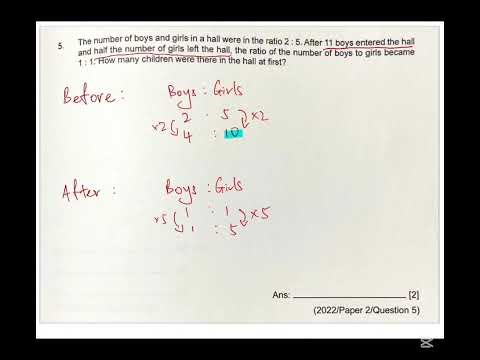 5. The number of boys and girls in a hall were in the ratio 2 : 5. After 11 boys entered the hall
and half the number of girls left the hall, the ratio of the number of boys to girls became
1 : 1. How many children were there in the hall at first?
Before : Boys : Girls
2 : 5
×2 ×2
4 : 10
After : Boys : Girls
1 : 1
×5 ×5
1 : 5
Ans: [2]
(2022/Paper 2/Question 5)